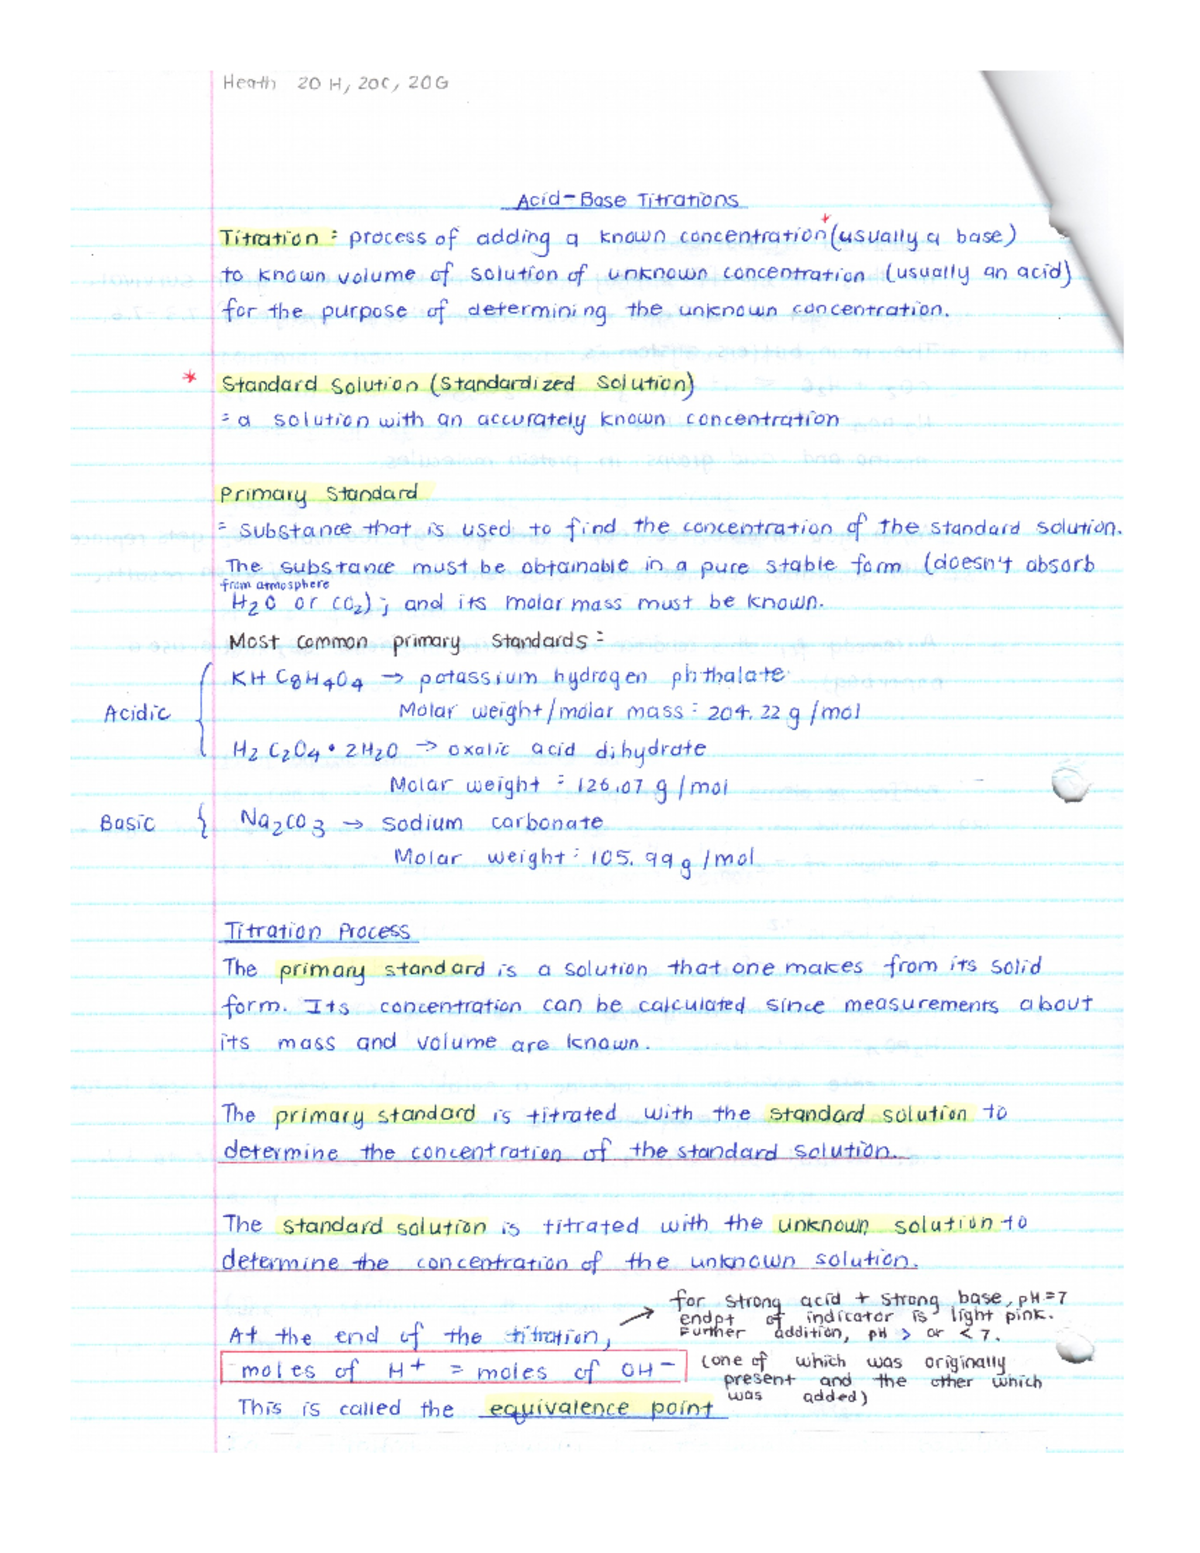 Heath 20H, 20C, 20G
Acid-Base Titrations
Titration = process of adding a known concentration* (usually a base)
to known volume of solution of unknown concentration (usually an acid)
for the purpose of determining the unknown concentration.
* Standard Solution (Standardized Solution)
= a solution with an accurately known concentration
Primary Standard
= Substance that is used to find the concentration of the standard solution.
The substance must be obtainable in a pure stable form (doesn't absorb
from atmosphere
H2O or CO2); and its molar mass must be known.
Most common primary Standards =
KHC8H4O4 → potassium hydrogen phthalate
Acidic { Molar weight/molar mass = 204.22 g/mol
H2C2O4 • 2H2O → oxalic acid dihydrate
Molar weight = 126.07 g/mol
Basic { Na2CO3 → sodium carbonate
Molar weight = 105.99 g/mol
Titration Process
The primary standard is a solution that one makes from its solid
form. Its concentration can be calculated since measurements about
its mass and volume are known.
The primary standard is titrated with the standard solution to
determine the concentration of the standard solution.
The standard solution is titrated with the unknown solution to
determine the concentration of the unknown solution.
At the end of the titration, →
for strong acid + strong base, pH=7
endpt of indicator is light pink.
Further addition, pH > or < 7.
moles of H+ = moles of OH-
(one of which was originally
present and the other which
was added)
This is called the equivalence point